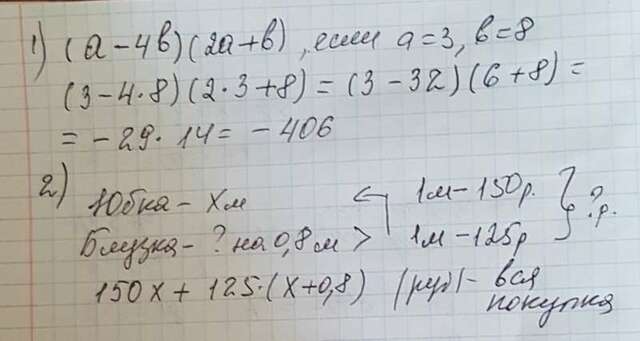 1) (a-4b)(2a+b), если a=3, b=8
(3-4·8)(2·3+8) = (3-32)(6+8) =
= -29·14 = -406
2) Юбка - xм < 1м-150р. } ?р.
Блузка - ? на 0,8м > 1м-125р
150x + 125·(x+0,8) (руб) - вся
покупка